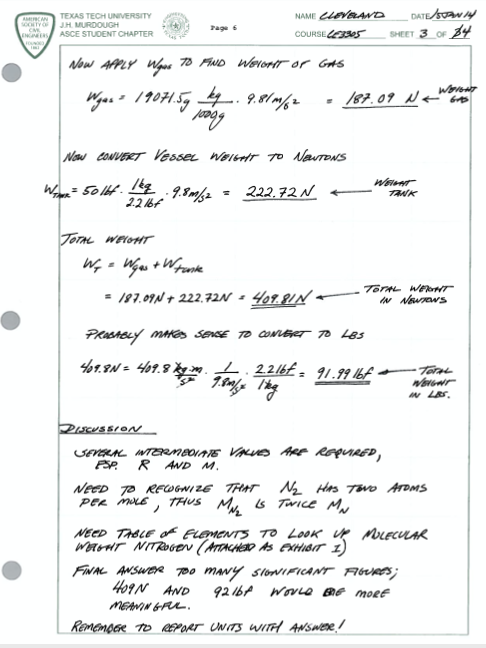 AMERICAN
SOCIETY OF
CIVIL
ENGINEERS
FOUNDED
1852
TEXAS TECH UNIVERSITY
J.H. MURDOUGH
ASCE STUDENT CHAPTER
Page 6
NAME CLEVELAND DATE 15JAN14
COURSE CE3305 SHEET 3 OF 24
NOW APPLY Wgas TO FIND WEIGHT OF GAS
Wgas = 19071.5g kg/1000g · 9.81m/s² = 187.09 N ← WEIGHT GAS
NOW CONVERT VESSEL WEIGHT TO NEWTONS
WTANK = 50 lbf · 1kg/2.2lbf · 9.8m/s² = 222.72N ← WEIGHT TANK
TOTAL WEIGHT
WT = Wgas + Wtank
= 187.09N + 222.72N = 409.81N ← TOTAL WEIGHT IN NEWTONS
PROBABLY MAKES SENSE TO CONVERT TO LBS
409.8N = 409.8 kg·m/s² · 1/9.8m/s² · 2.2lbf/1kg = 91.99 lbf ← TOTAL WEIGHT IN LBS.
DISCUSSION
SEVERAL INTERMEDIATE VALUES ARE REQUIRED,
ESP. R AND M.
NEED TO RECOGNIZE THAT N2 HAS TWO ATOMS
PER MOLE, THUS MN2 IS TWICE MN
NEED TABLE OF ELEMENTS TO LOOK UP MOLECULAR
WEIGHT NITROGEN (ATTACHED AS EXHIBIT 1)
FINAL ANSWER TOO MANY SIGNIFICANT FIGURES;
409N AND 92 lbf WOULD BE MORE
MEANINGFUL.
REMEMBER TO REPORT UNITS WITH ANSWER!